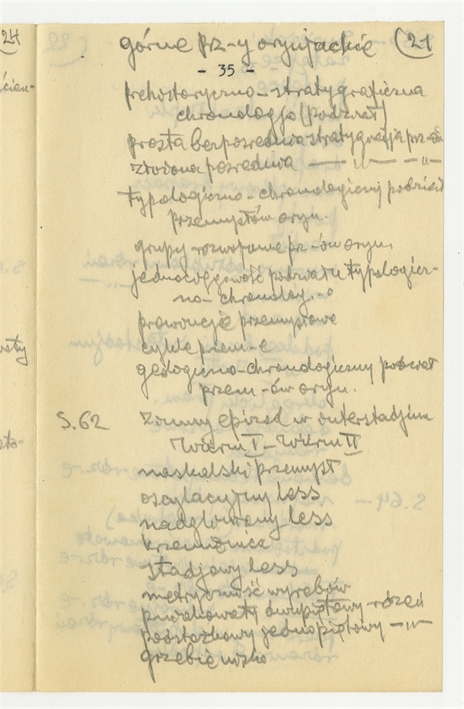 górne prz-y oryniackie (21
- 35 -
prehistoryczno-stratygraficzna
chronologja (podział)
prosta bezpośrednia stratygrafja prz-ów
złożona pośrednia — " — — " —
typologiczno-chronologiczny podział
przemysłów oryn.
grupy rozwojowe prz-ów oryn.
jednociągowość podziału typologicz-
no-chronolog.-o
prowincje przemysłowe
cykle przem-e
geologiczno-chronologiczny podział
przem-ów oryn.
S.62 zimny epizod w interstadjum
Würm I - Würm II
maskalski przemysł
oscylacyjny less
nadglowany less
krzemionica
stadjowy less
metryczność wyrobów
pniakowaty dwupiętowy rdzeń
podstożkowy jednopiętowy — " —
grzebienisko